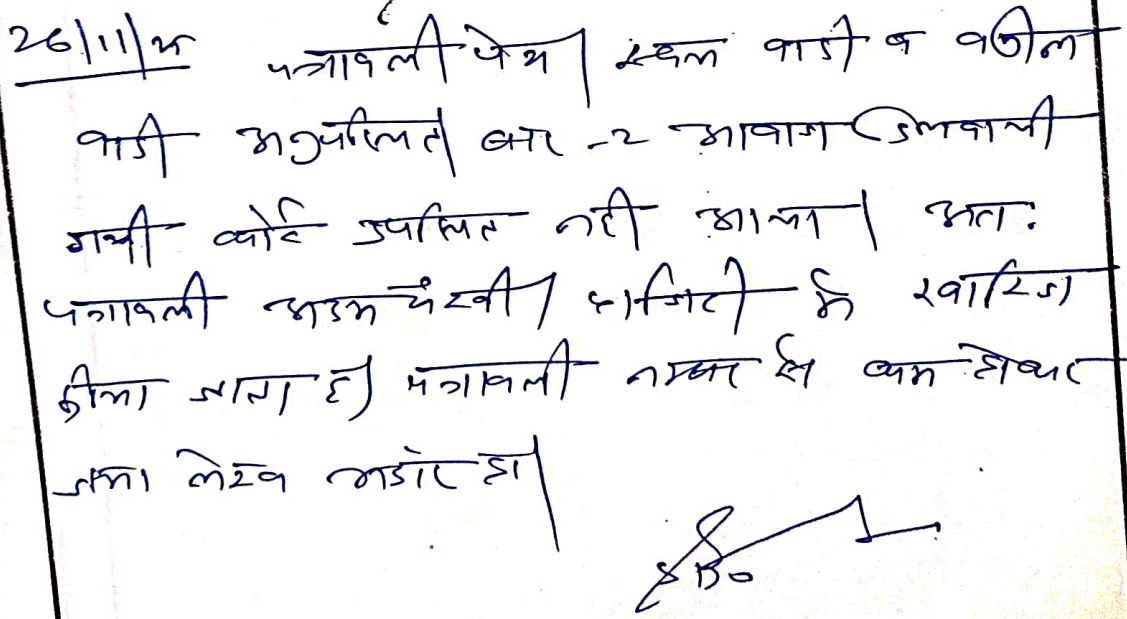 26/11/25 पत्रावली पेश। स्वयं वादी व वकील
वादी अनुपस्थित। बार-2 आवाज दिलवायी
गयी कोई उपस्थित नहीं आया। अतः
पत्रावली अदम पैरवी / हाजिरी में खारिज
किया जाता है। पत्रावली नम्बर से कम होकर
जमा लेख भंडार हो।
SDO